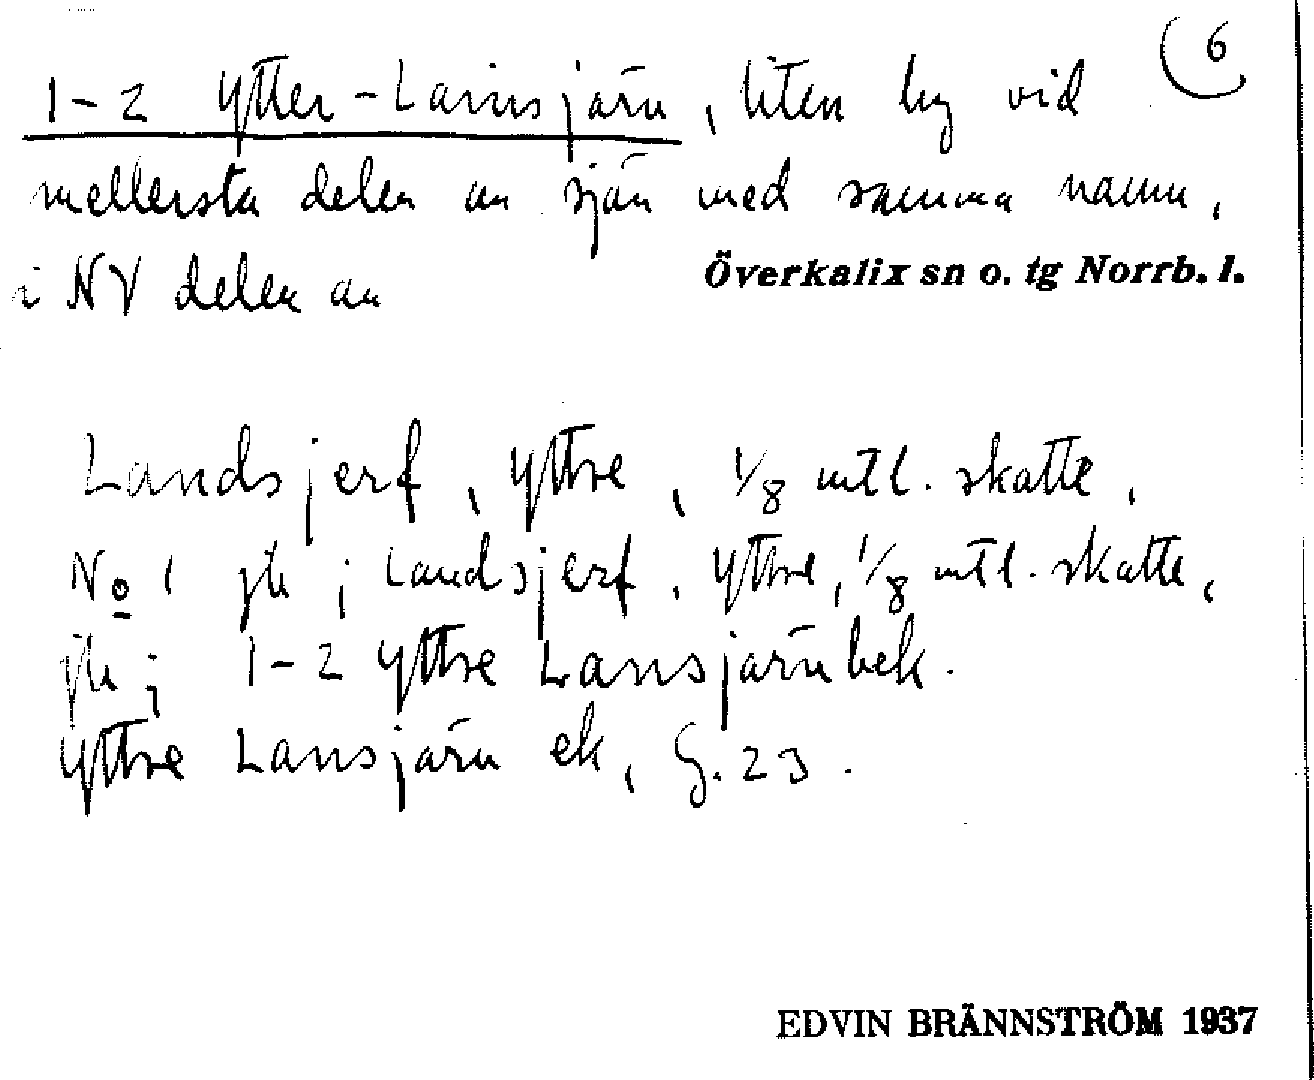 6
1-2 Ytter-Lansjärv, liten by vid
mellersta delen av sjön med samma namn,
i NV delen av
Överkalix sn o. tg Norrb. l.
Landsjerf, Yttre, 1/8 mtl. skatte,
No 1 jb; Landsjerf, Yttre, 1/8 mtl. skatte,
jb; 1-2 Yttre Lansjärv bek.
Yttre Lansjärv ek, G. 23.
EDVIN BRÄNNSTRÖM 1937